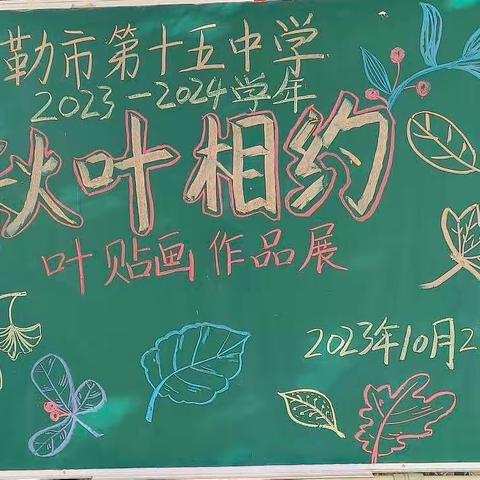 勒市第十五中学
2023-2024学年
秋叶相约
叶贴画作品展
2023年10月2